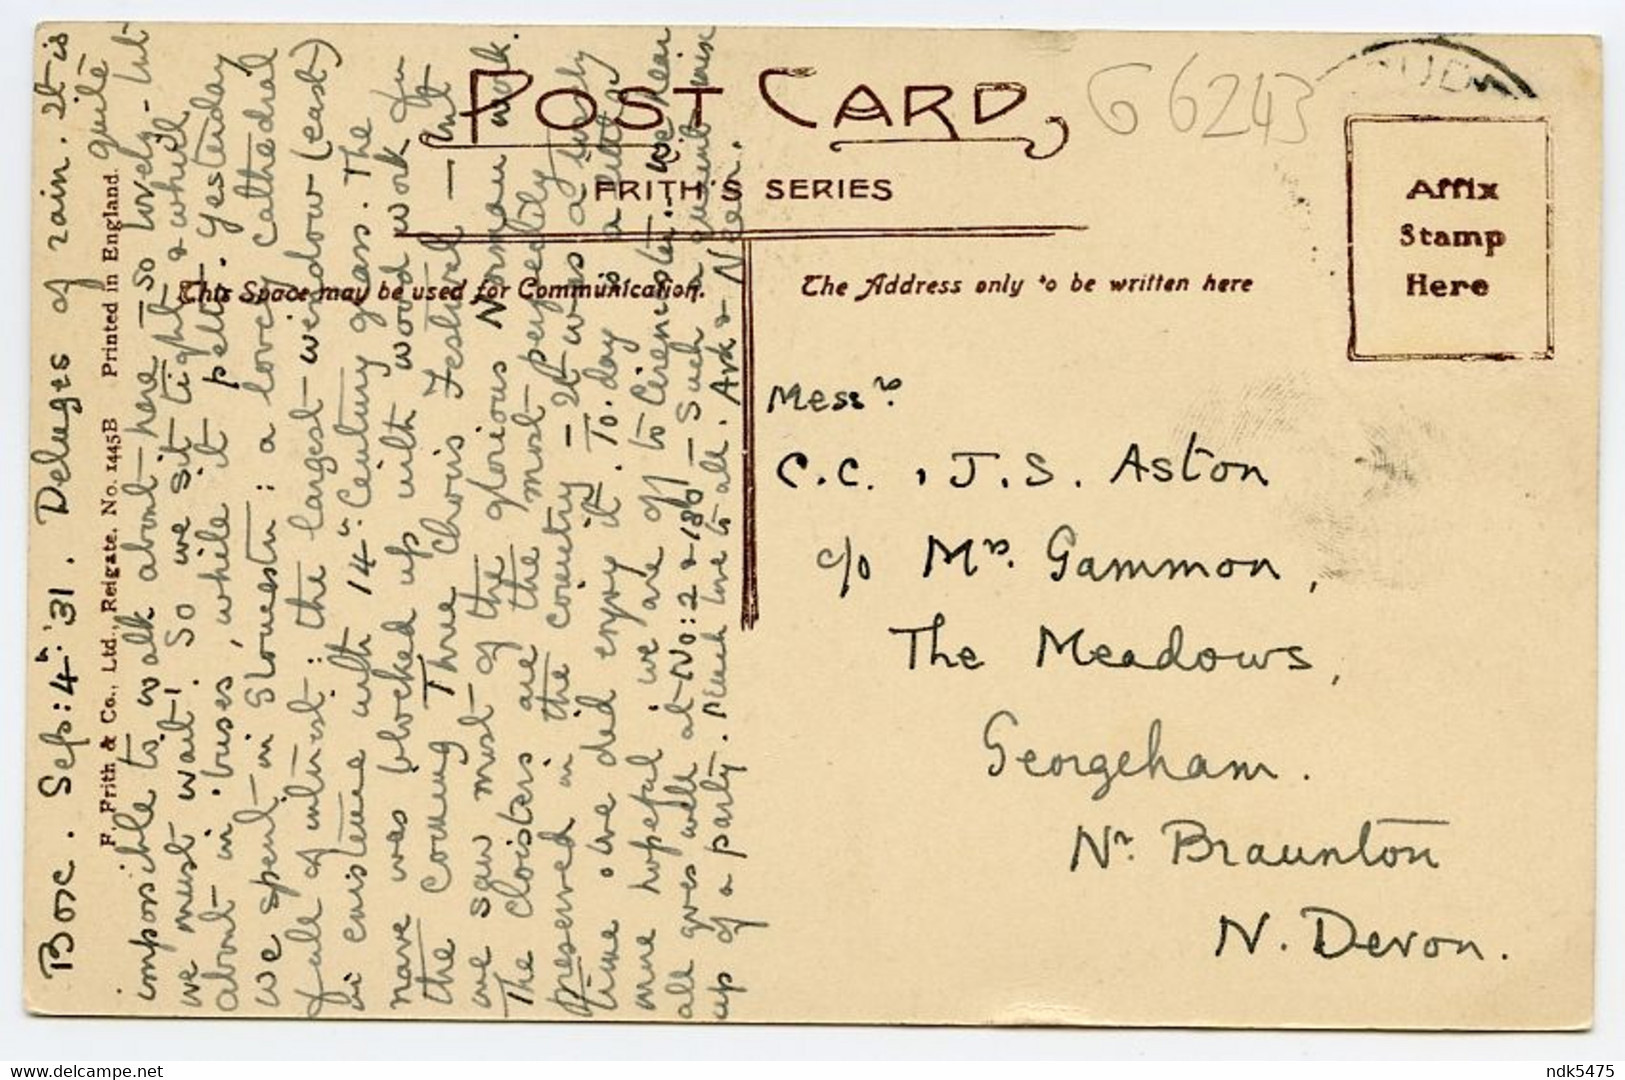 POST CARD
FRITH'S SERIES
G 6243
Affix
Stamp
Here
This Space may be used for Communication.
The Address only to be written here
F. Frith & Co., Ltd., Reigate. No. 1445B Printed in England.
Messrs.
C.C. , J.S. Aston
c/o Mrs. Gammon,
The Meadows,
Georgeham.
Nr. Braunton
N. Devon.
Box. Sep: 4th: '31. Deluges of rain. It is quite
impossible to walk about here - so lovely - but
we must wait! So we sit tight & while
about in buses, while it pelts. Yesterday
we spent in Gloucester: a lovely Cathedral
full of interest: the largest window (east)
in existence with 14th Century glass. The
nave was blocked up with wood work for
the coming Three Choirs Festival - but
we saw most of the glorious Norman work.
The Cloisters are the most perfectly
preserved in the country - It was a
time & we did enjoy it. To-day is a little
more hopeful & we are off to Cirencester. We hear
all goes well at No: 2 & 186! - Such a
up of a party. Much love to all. A & N
ndk5475